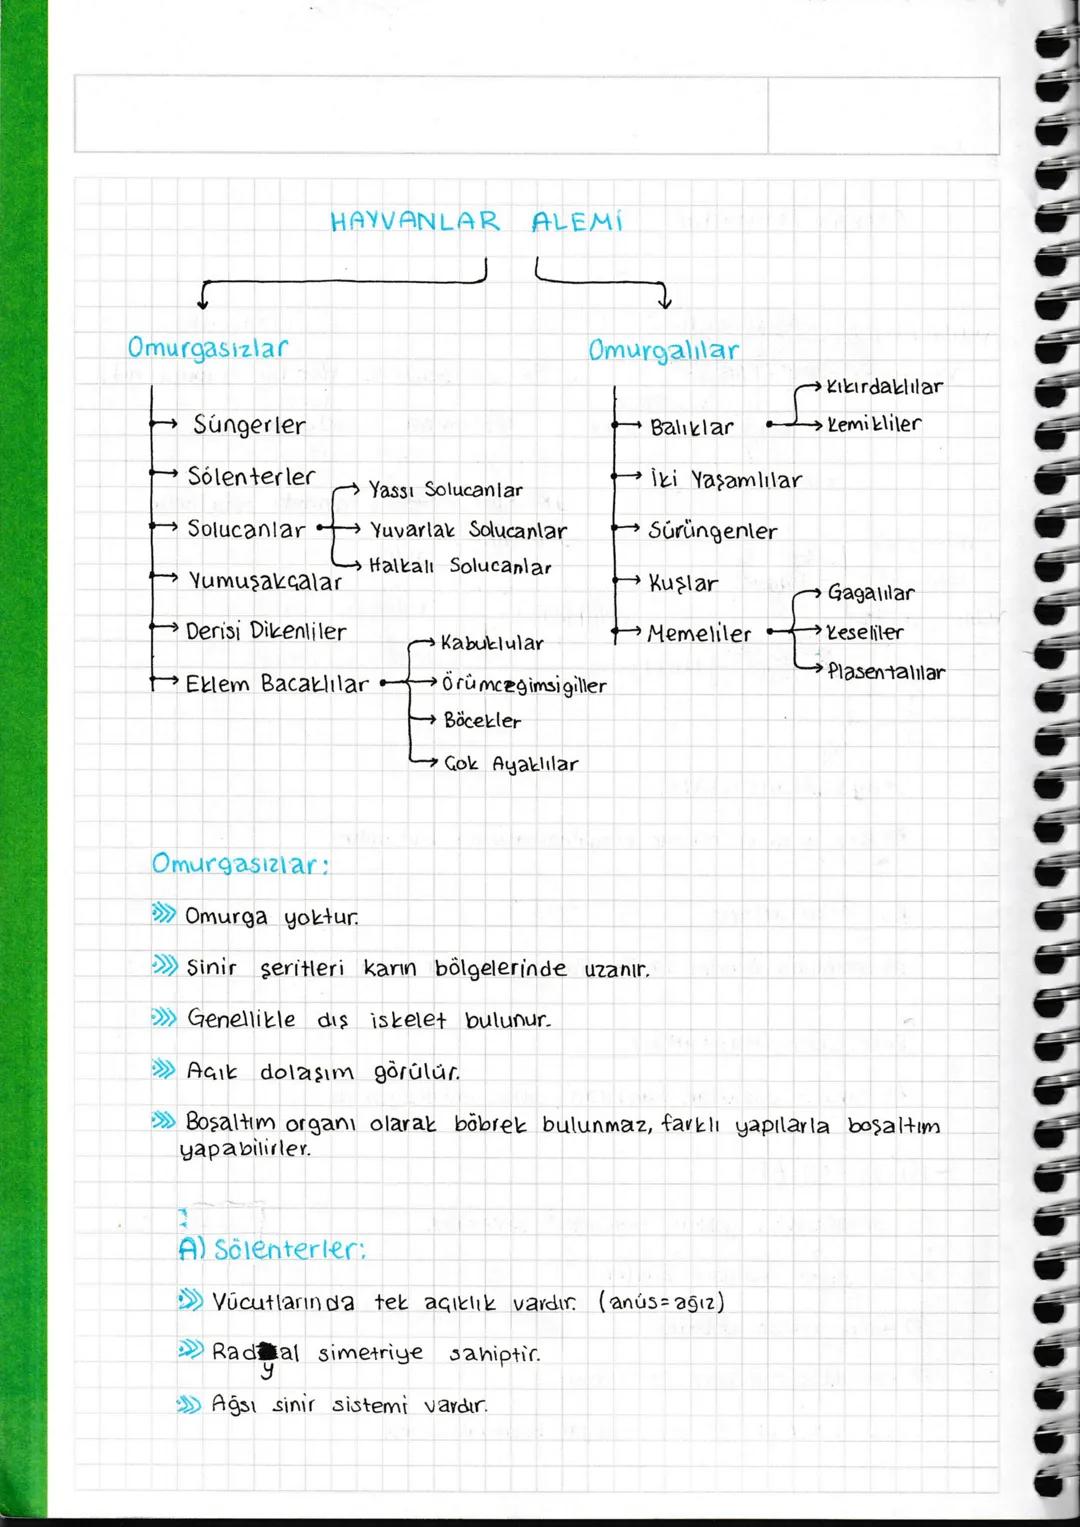 HAYVANLAR ALEMİ
Omurgasızlar
Omurgalılar
Süngerler
Sölenterler
Solucanlar
Yassı Solucanlar
Yuvarlak Solucanlar
Halkalı Solucanlar
Yumuşakçalar
Derisi Dikenliler
Eklem Bacaklılar
Kabuklular
Örümceğimsigiller
Böcekler
Çok Ayaklılar
Balıklar
Kıkırdaklılar
Kemikliler
İki Yaşamlılar
Sürüngenler
Kuşlar
Memeliler
Gagalılar
Keseliler
Plasentalılar
Omurgasızlar:
Omurga yoktur.
Sinir şeritleri karın bölgelerinde uzanır.
Genellikle dış iskelet bulunur.
Açık dolaşım görülür.
Boşaltım organı olarak böbrek bulunmaz, farklı yapılarla boşaltım
yapabilirler.
A) Sölenterler:
Vücutlarında tek açıklık vardır. (anüs=ağız)
Radyal simetriye sahiptir.
Ağsı sinir sistemi vardır.